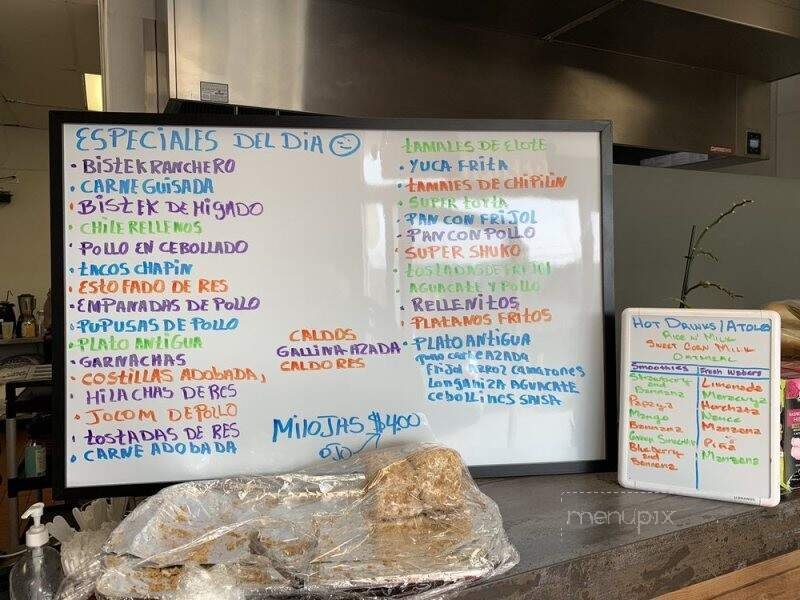 ESPECIALES DEL DIA
• BISTEK RANCHERO
• CARNE GUISADA
• BISTEK DE HIGADO
• CHILE RELLENOS
• POLLO EN CEBOLLADO
• TACOS CHAPIN
• ESTOFADO DE RES
• EMPANADAS DE POLLO
• PUPUSAS DE POLLO
• PLATO ANTIGUA
• GARNACHAS
• COSTILLAS ADOBADA,
• HILACHAS DE RES
• JOCOM DE POLLO
• TOSTADAS DE RES
• CARNE ADOBADA
CALDOS
GALLINA AZADA
CALDO RES
MILOJAS $4.00
OJO
TAMALES DE ELOTE
• YUCA FRITA
• TAMALES DE CHIPILIN
• SUPER TORTA
• PAN CON FRIJOL
• PAN CON POLLO
• SUPER SHUKO
• TOSTADAS DE FRIJOL
AGUACATE Y POLLO
• RELLENITOS
• PLATANOS FRITOS
• PLATO ANTIGUA
CARNE AZADA
FRIJOL ARROZ CAMARONES
LONGANIZA AGUACATE
CEBOLLINES SALSA
HOT DRINKS/ATOLE
RICE N' MILK
SWEET CORN MILK
OATMEAL
Smoothies
Strawberry
and
Bannana
Papaya
Mango
Bannana
Green Smoothie
Blueberry
and
Bannana
Fresh Waters
Limonada
Maracuya
Horchata
Nance
Manzana
Piña
Manzana
menupix